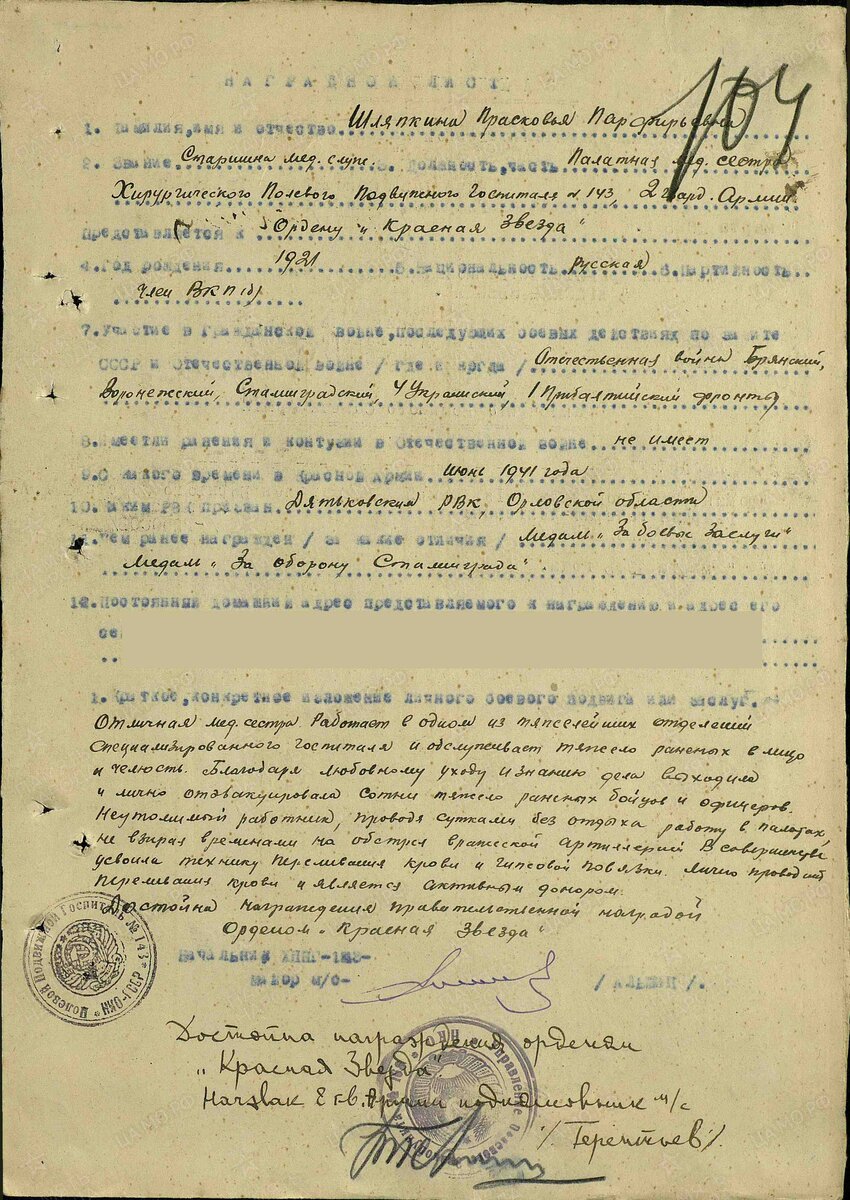 НАГРАДНОЙ ЛИСТ
104
1. Фамилия, имя и отчество Шляпкина Прасковья Парфирьевна
2. Звание Старшина мед. служ. 3. Должность, часть Палатная мед. сестра
Хирургического Полевого Подвижного Госпиталя № 143, 2 Гвард. Армии
Представляется к Ордену „Красная Звезда"
4. Год рождения 1921 5. Национальность русская 6. Партийность
член ВКП(б)
7. Участие в гражданской войне, последующих боевых действиях по защите
СССР и Отечественной войне / где и когда / Отечественная война Брянский,
Воронежский, Сталинградский, 4 Украинский, 1 Прибалтийский фронты
8. Имеет ли ранения и контузии в Отечественной войне не имеет
9. С какого времени в Красной Армии Июнь 1941 года
10. Каким РВК призван Дятьковским РВК, Орловской области
11. Чем ранее награжден / за какие отличия / Медаль „За боевые заслуги"
Медаль „За оборону Сталинграда".
12. Постоянный домашний адрес представляемого к награждению и адрес его
се
1. Краткое, конкретное изложение личного боевого подвига или заслуг.
Отличная мед. сестра Работает в одном из тяжелейших отделений
Специализированного госпиталя и обслуживает тяжело раненых в лицо
и челюсть. Благодаря любовному уходу и знанию дела выходила
и лично отэвакуировала сотни тяжело раненых бойцов и офицеров.
Неутомимый работник, проводя сутками без отдыха работу в палатах,
не взирая временами на обстрел вражеской артиллерией В совершенстве
усвоила технику переливания крови и гипсовой повязки. Лично проводит
переливания крови и является активным донором.
Достойна награждения правительственной наградой
Орденом „Красная Звезда"
Начальник ХППГ-143-
майор м/с- / АЛЕШИН /.
Полевой Подвижной Госпиталь № 143 * НКО-СССР *
Достойна награждения орденом
„Красная Звезда".
Начэвак 2 гв. Армии подполковник м/с
/. Терентьев /.
НКО Управление